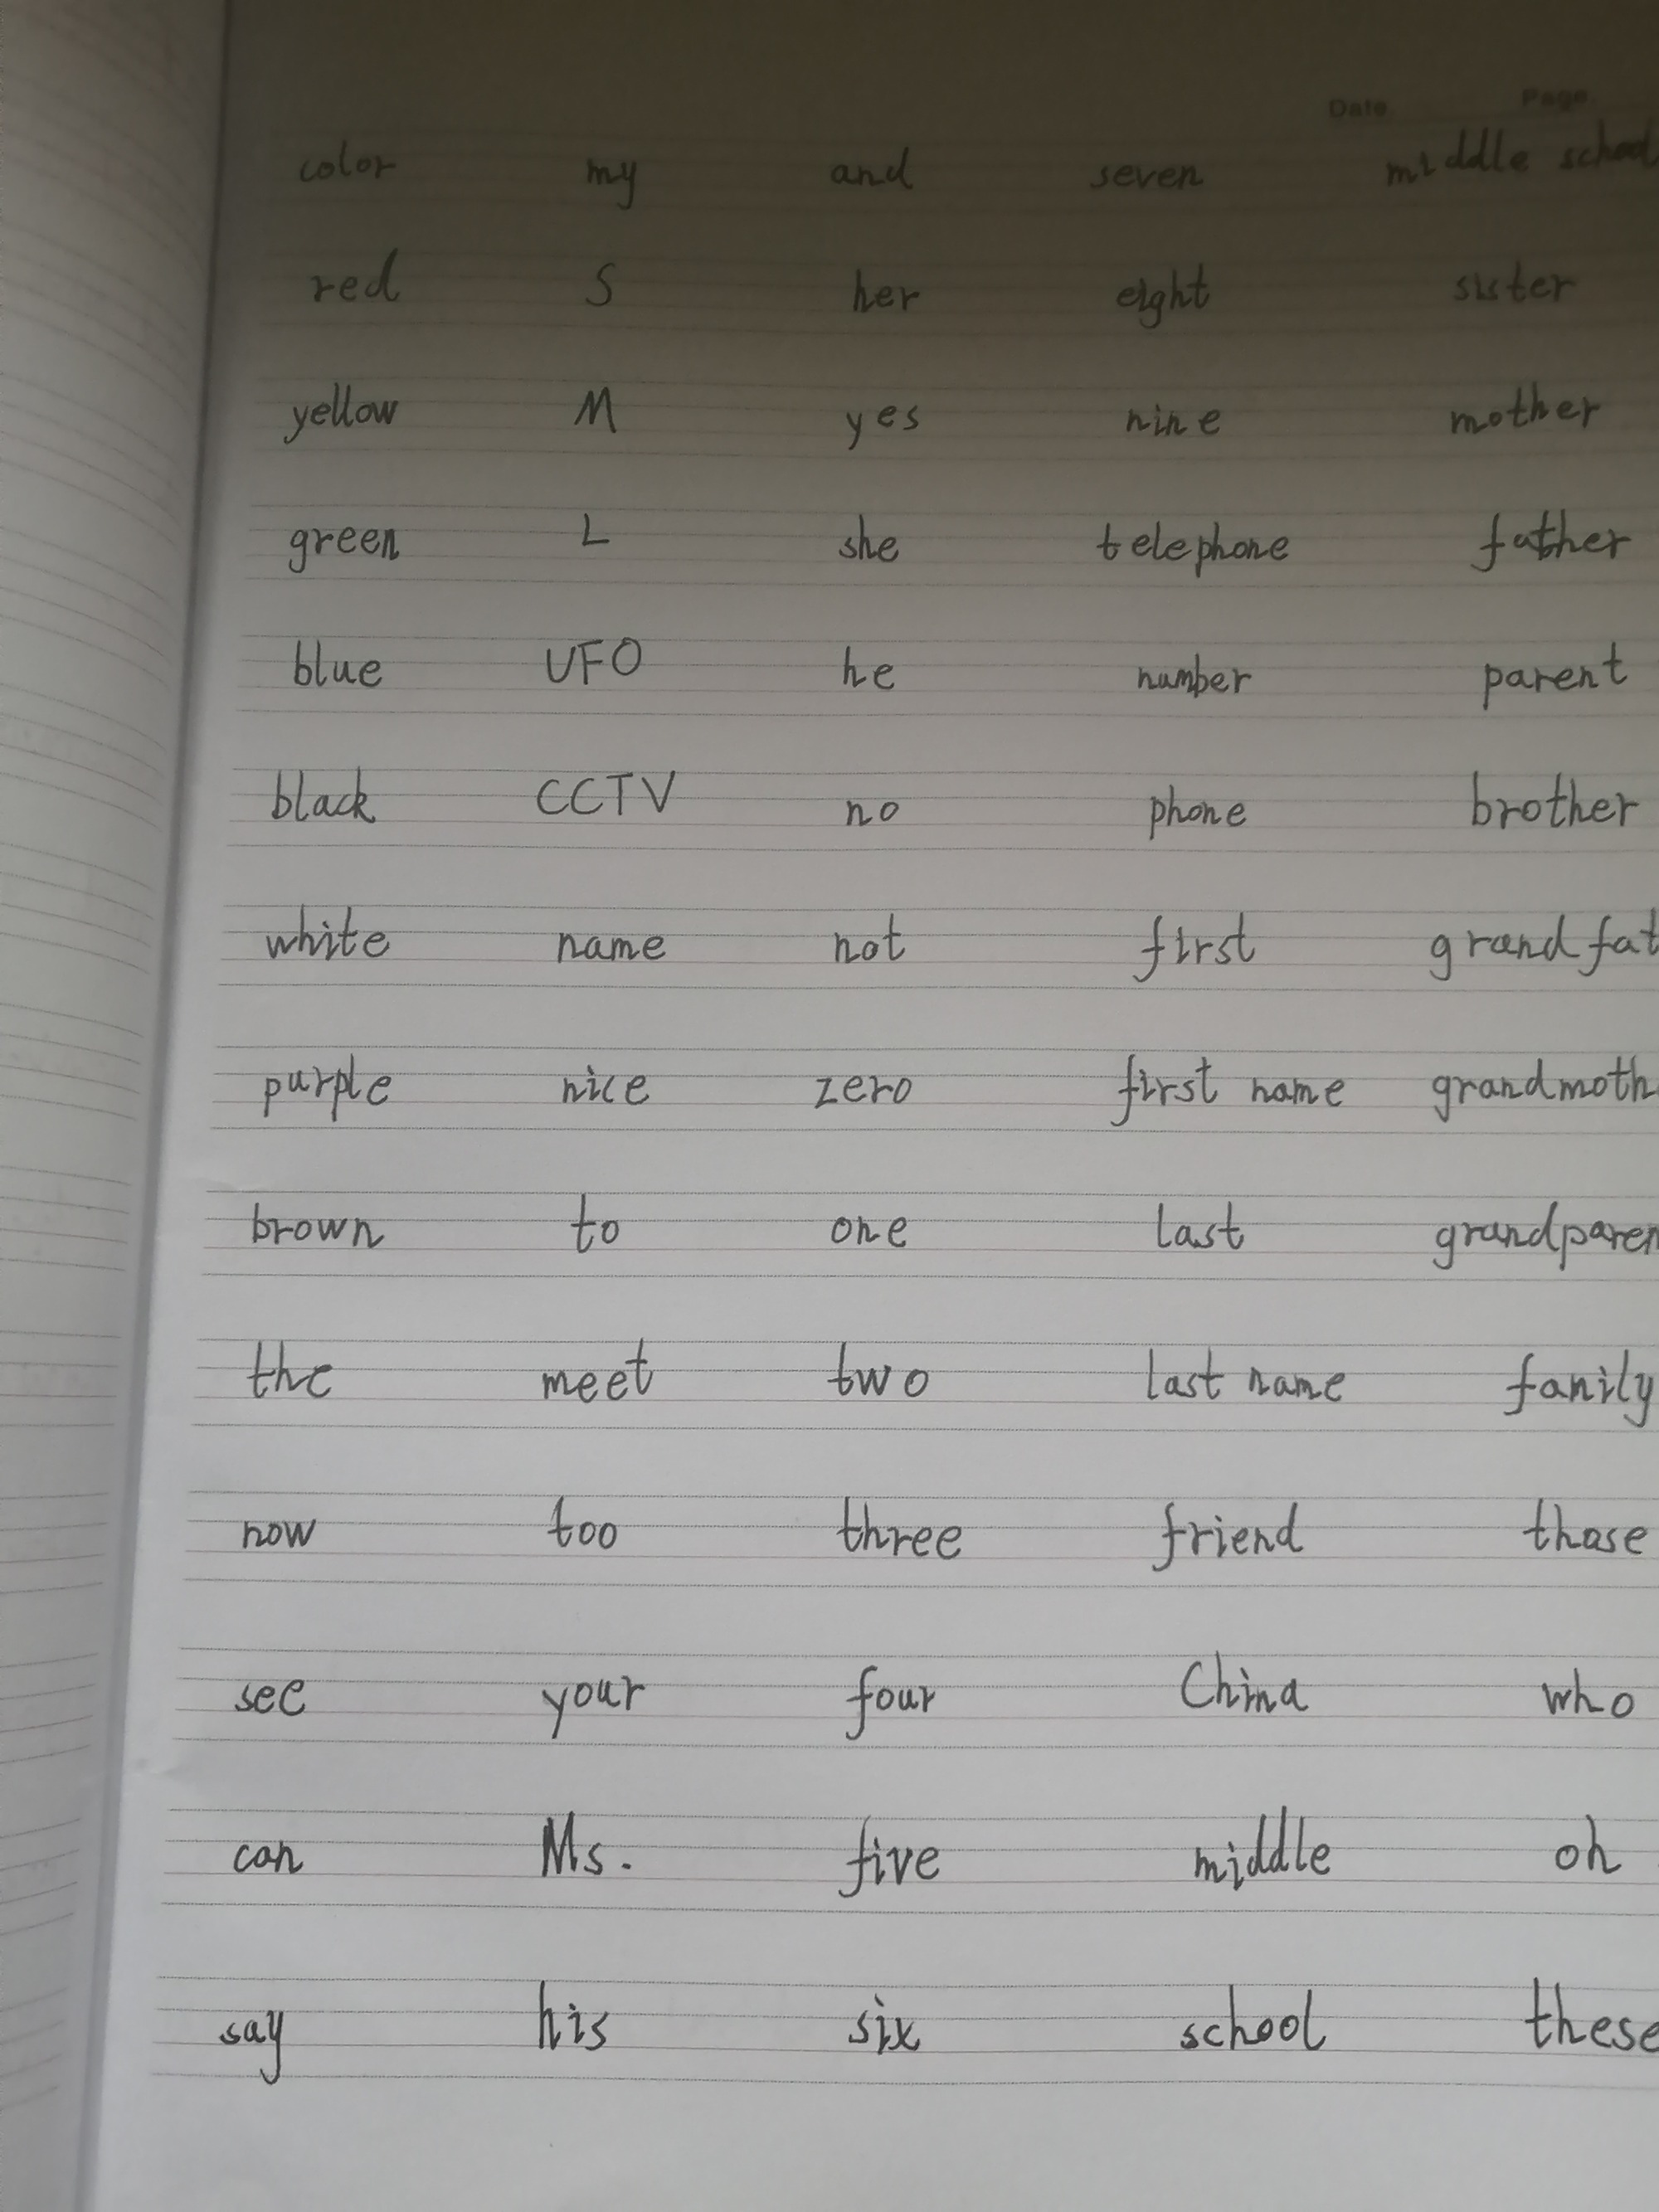 Date. Page.
color my and seven middle school
red S her eight sister
yellow M yes nine mother
green L she telephone father
blue UFO he number parent
black CCTV no phone brother
white name not first grandfat
purple nice zero first name grandmoth
brown to one last grandparen
the meet two last name fanily
now too three friend those
see your four China who
can Ms. five middle oh
say his six school these